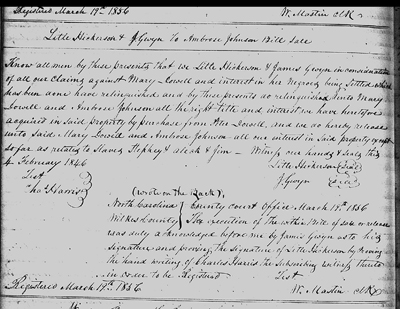 Registered March 19th. 1856 W. Mastin Clk
Litle Hickerson & J Gwyn To Ambrose Johnson Bill Sale
Know all men by these presents that we Litle Hickerson & James Gwyn in consideration
of all our claims against Mary Lowell and interest in his Negroes being settled which
has been done have relinquished and by these presents do relinquish unto Mary
Lowell and Ambrose Johnson all the right title and interest we have heretofore
acquired in said property by purchase from Lowell, and we do hereby release
unto said Mary Lowell and Ambrose Johnson all our interest in said property except
so far as related to Slaves & aleck & Jim - Witness our hands & seals this
4. February 1846 Litle Hickerson (Seal)
Test J. Gwyn (Seal)
Chas Harris
(wrote on the Back)
North Carolina } County Court Office March 19th. 1856
Wilkes County } The execution of the within Bill of sale or release
was duly acknowledged before me by James Gwyn as to his
signature and proving the signature of Litle Hickerson by proving
the hand writing of Charles Harris the subscribing witness thereto
in order to be Registered Test
Registered March 19th. 1856 W. Mastin Clk